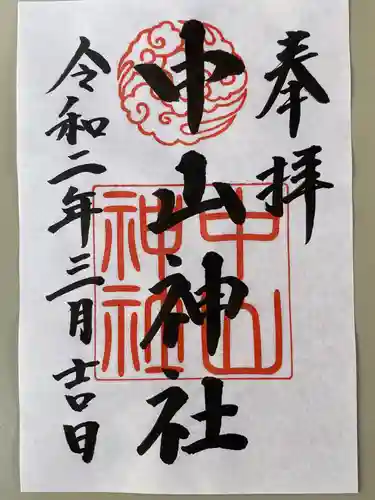 奉拝
中山神社
令和二年三月吉日
中山
神社